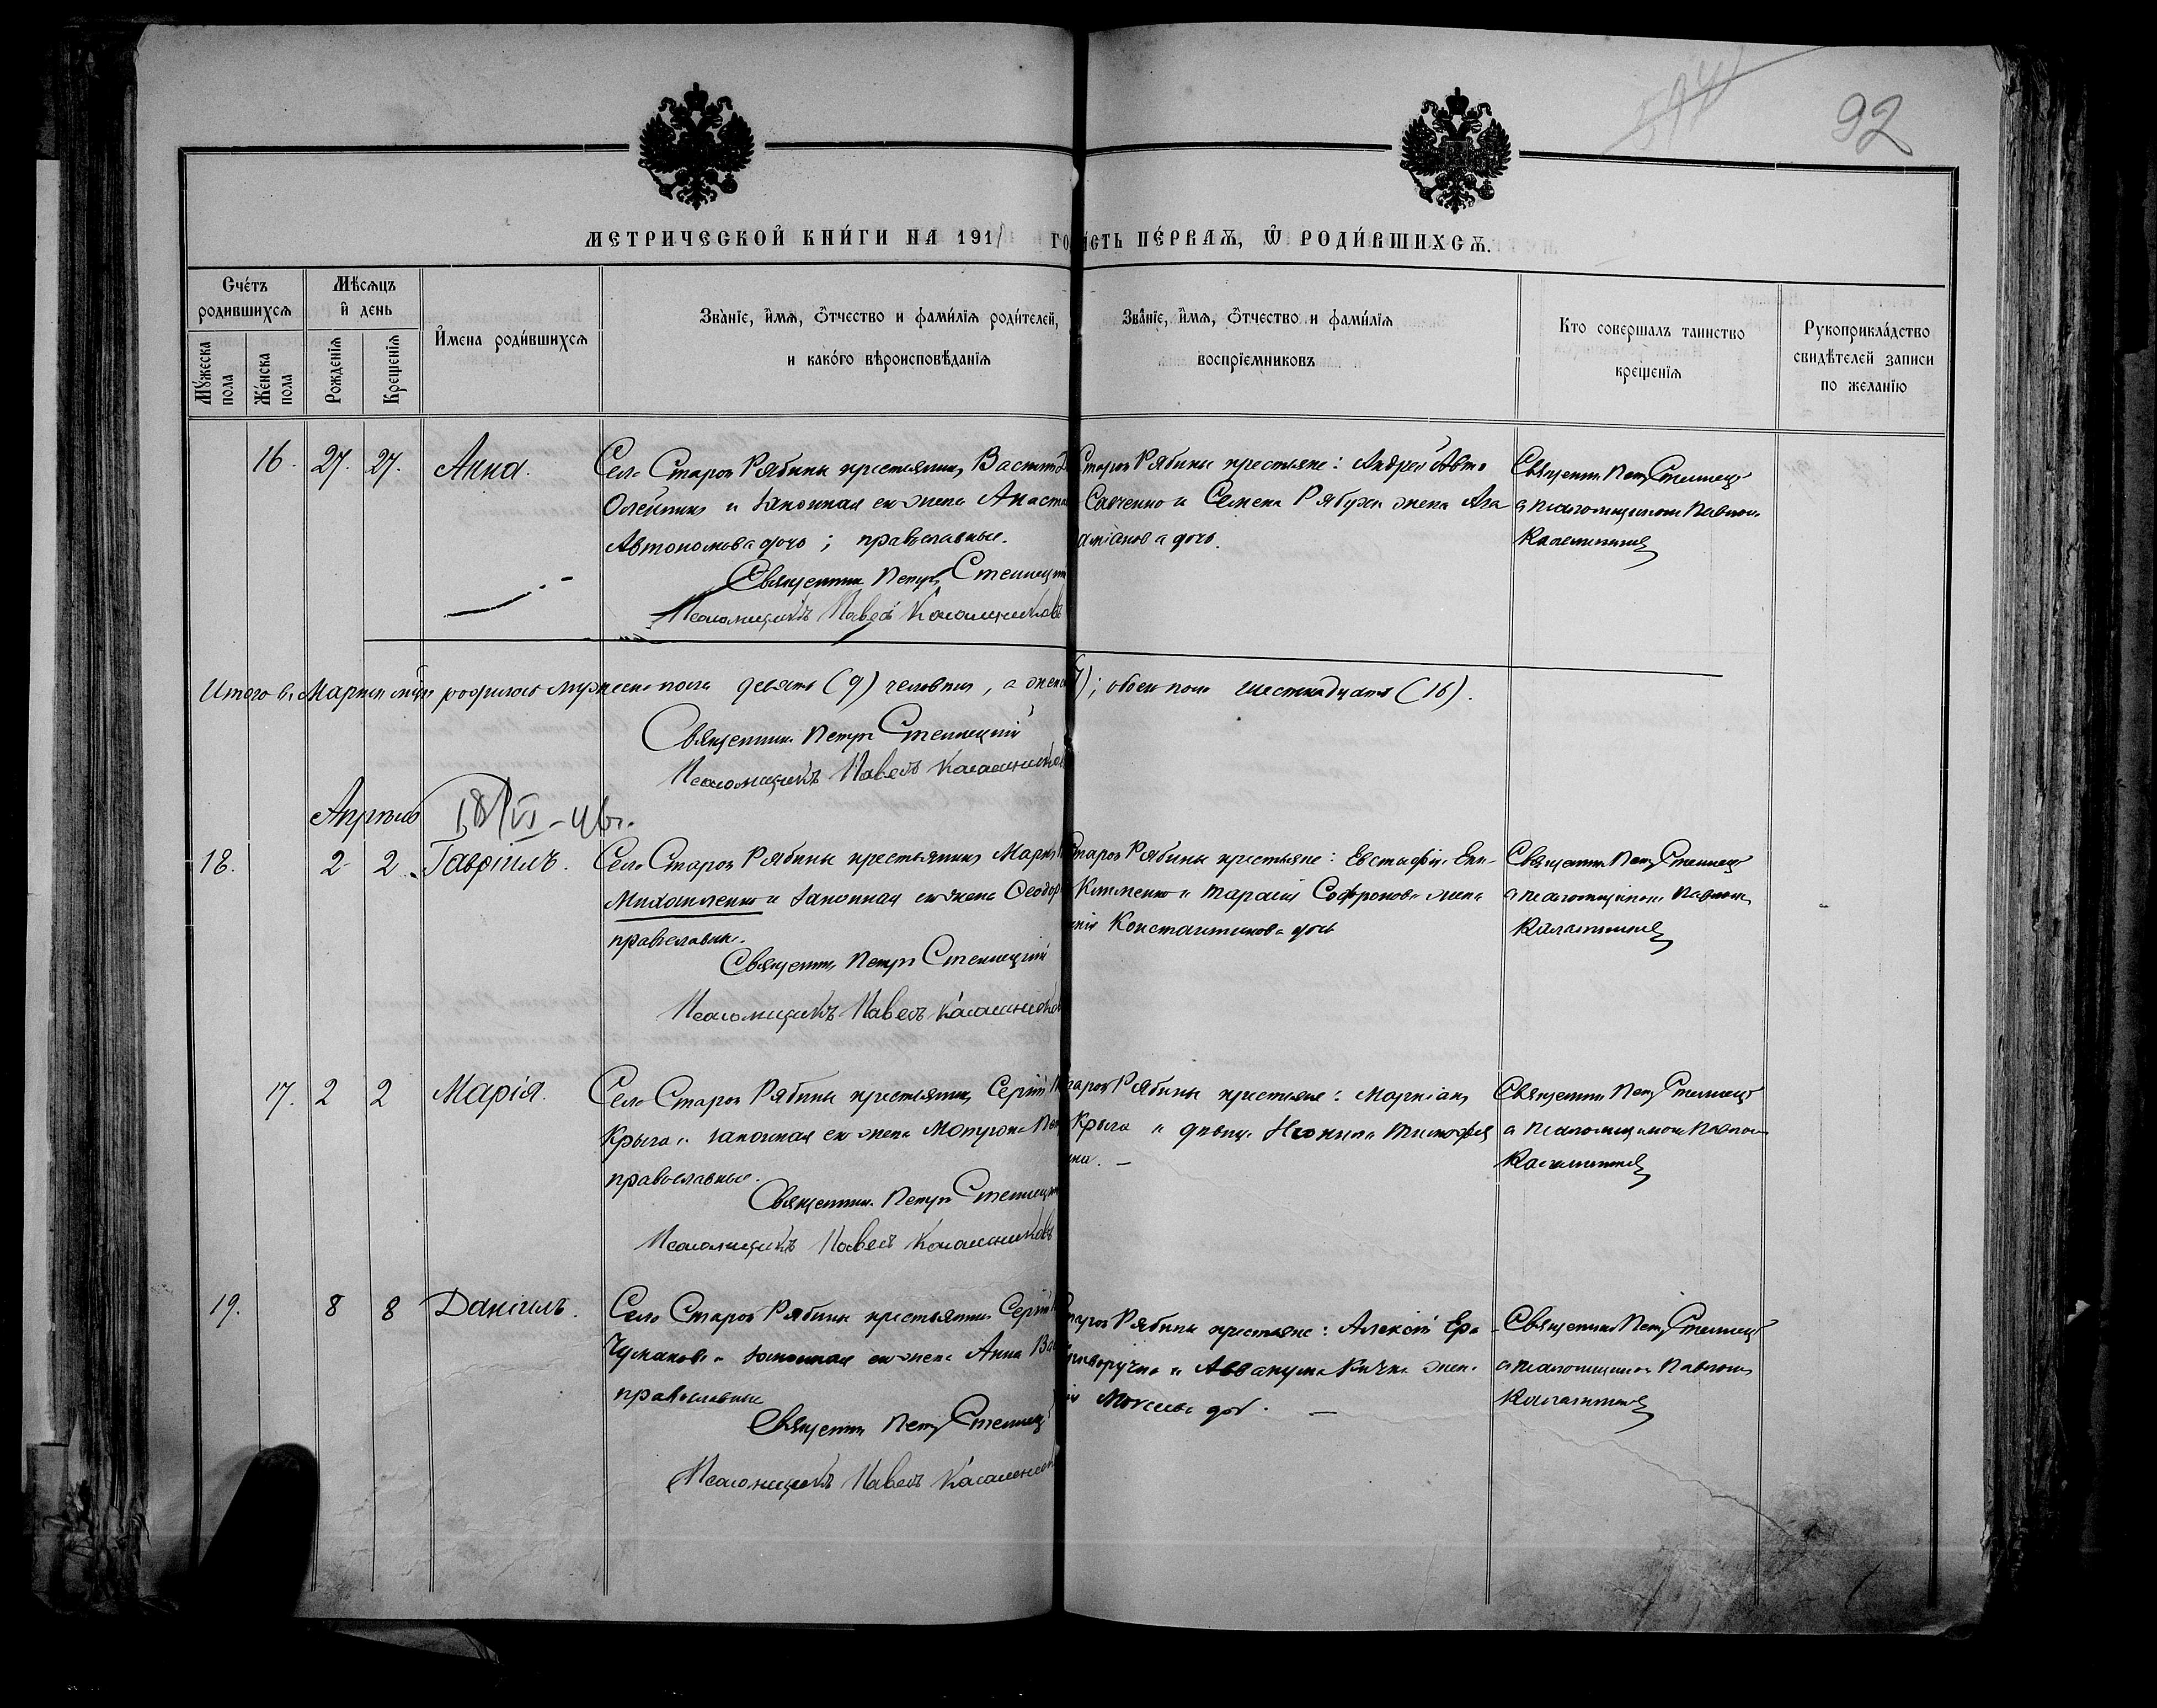 92
МЕТРИЧЕСКОЙ КНИ́ГИ НА 1911 ГО
СТЬ ПЕ́РВАѦ, Ѿ РОДИ́ВШИХСѦ.
Счéтъ родившихсѧ
Мѣсѧцъ и день
Имена роди́вшихсѧ
Звáнїе, и́мѧ, ѻ҆тчество и фами́лїѧ роди́телей,
и какóго вѣроисповѣ́данїѧ
Звáнїе, и́мѧ, ѻ҆тчество и фами́лїѧ
воспрїéмниковъ
Кто совершалъ таинство
крещенїѧ
Рукоприклáдство
свидѣтелей записи
по желанїю
Мýжеска пола
Жéнска пола
Рожденїѧ
Крещенїѧ
16. 27. 27. Анна.
Села Старой Рябины крестьянинъ Василій
Олейникъ и законная его жена Анаста
Автономова дочь; православные.
Священникъ Петръ Стеллецкій
Псаломщикъ Павелъ Калашниковъ
Старой Рябины крестьяне: Андрей Авто
Савченко и Семена Рябухи жена Ага
дочь.
Священникъ Петръ Стеллецкій
съ псаломщикомъ Павломъ
Калашниковымъ
Итого въ Мартѣ мцѣ родилось мужеска пола девять (9) человѣкъ, а женск
); обоего пола шестнадцать (16).
Священникъ Петръ Стеллецкій
Псаломщикъ Павелъ Калашников
Апрѣль
18/VI-46г.
18. 2 2 Гавріилъ.
Села Старой Рябины крестьянинъ Маркъ
Михайленко и законная его жена Ѳеодор
православные.
Священникъ Петръ Стеллецкій
Псаломщикъ Павелъ Калашников
Старой Рябины крестьяне: Евстафій Епи-
Клименко и Тарасія Софронова жена
Константинова дочь
Священникъ Петръ Стеллецкій
съ псаломщикомъ Павломъ
Калашниковымъ
17. 2 2 Марія.
Села Старой Рябины крестьянинъ Сергій
Крыга и законная его жена Матрона
православные.
Священникъ Петръ Стеллецкій
Псаломщикъ Павелъ Калашниковъ
тарой Рябины крестьяне: Маркіанъ
Крыга и дѣвица Неонила Тимофее
на. —
Священникъ Петръ Стеллецкій
съ псаломщикомъ Павломъ
Калашниковымъ
19. 8 8 Даніилъ.
Села Старой Рябины крестьянинъ Сергій
Чумаковъ и законная его жена Анна Ва
православные
Священникъ Петръ Стеллец
Псаломщикъ Павелъ Калашников
тарой Рябины крестьяне: Алексій Ера
криворучко и Аввакума Кичка жена
Моисеева доч. —
Священникъ Петръ Стеллецкій
съ псаломщикомъ Павломъ
Калашниковымъ